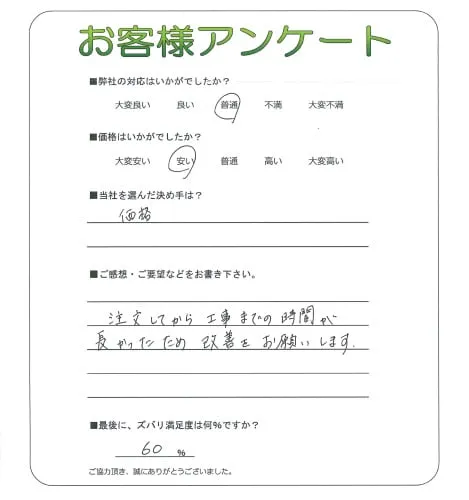 お客様アンケート
■弊社の対応はいかがでしたか?
大変良い 良い 普通 不満 大変不満
■価格はいかがでしたか?
大変安い 安い 普通 高い 大変高い
■当社を選んだ決め手は?
価格
■ご感想・ご要望などをお書き下さい。
注文してから工事までの時間が
長かったため改善をお願いします.
■最後に、ズバリ満足度は何%ですか?
60 %
ご協力頂き、誠にありがとうございました。